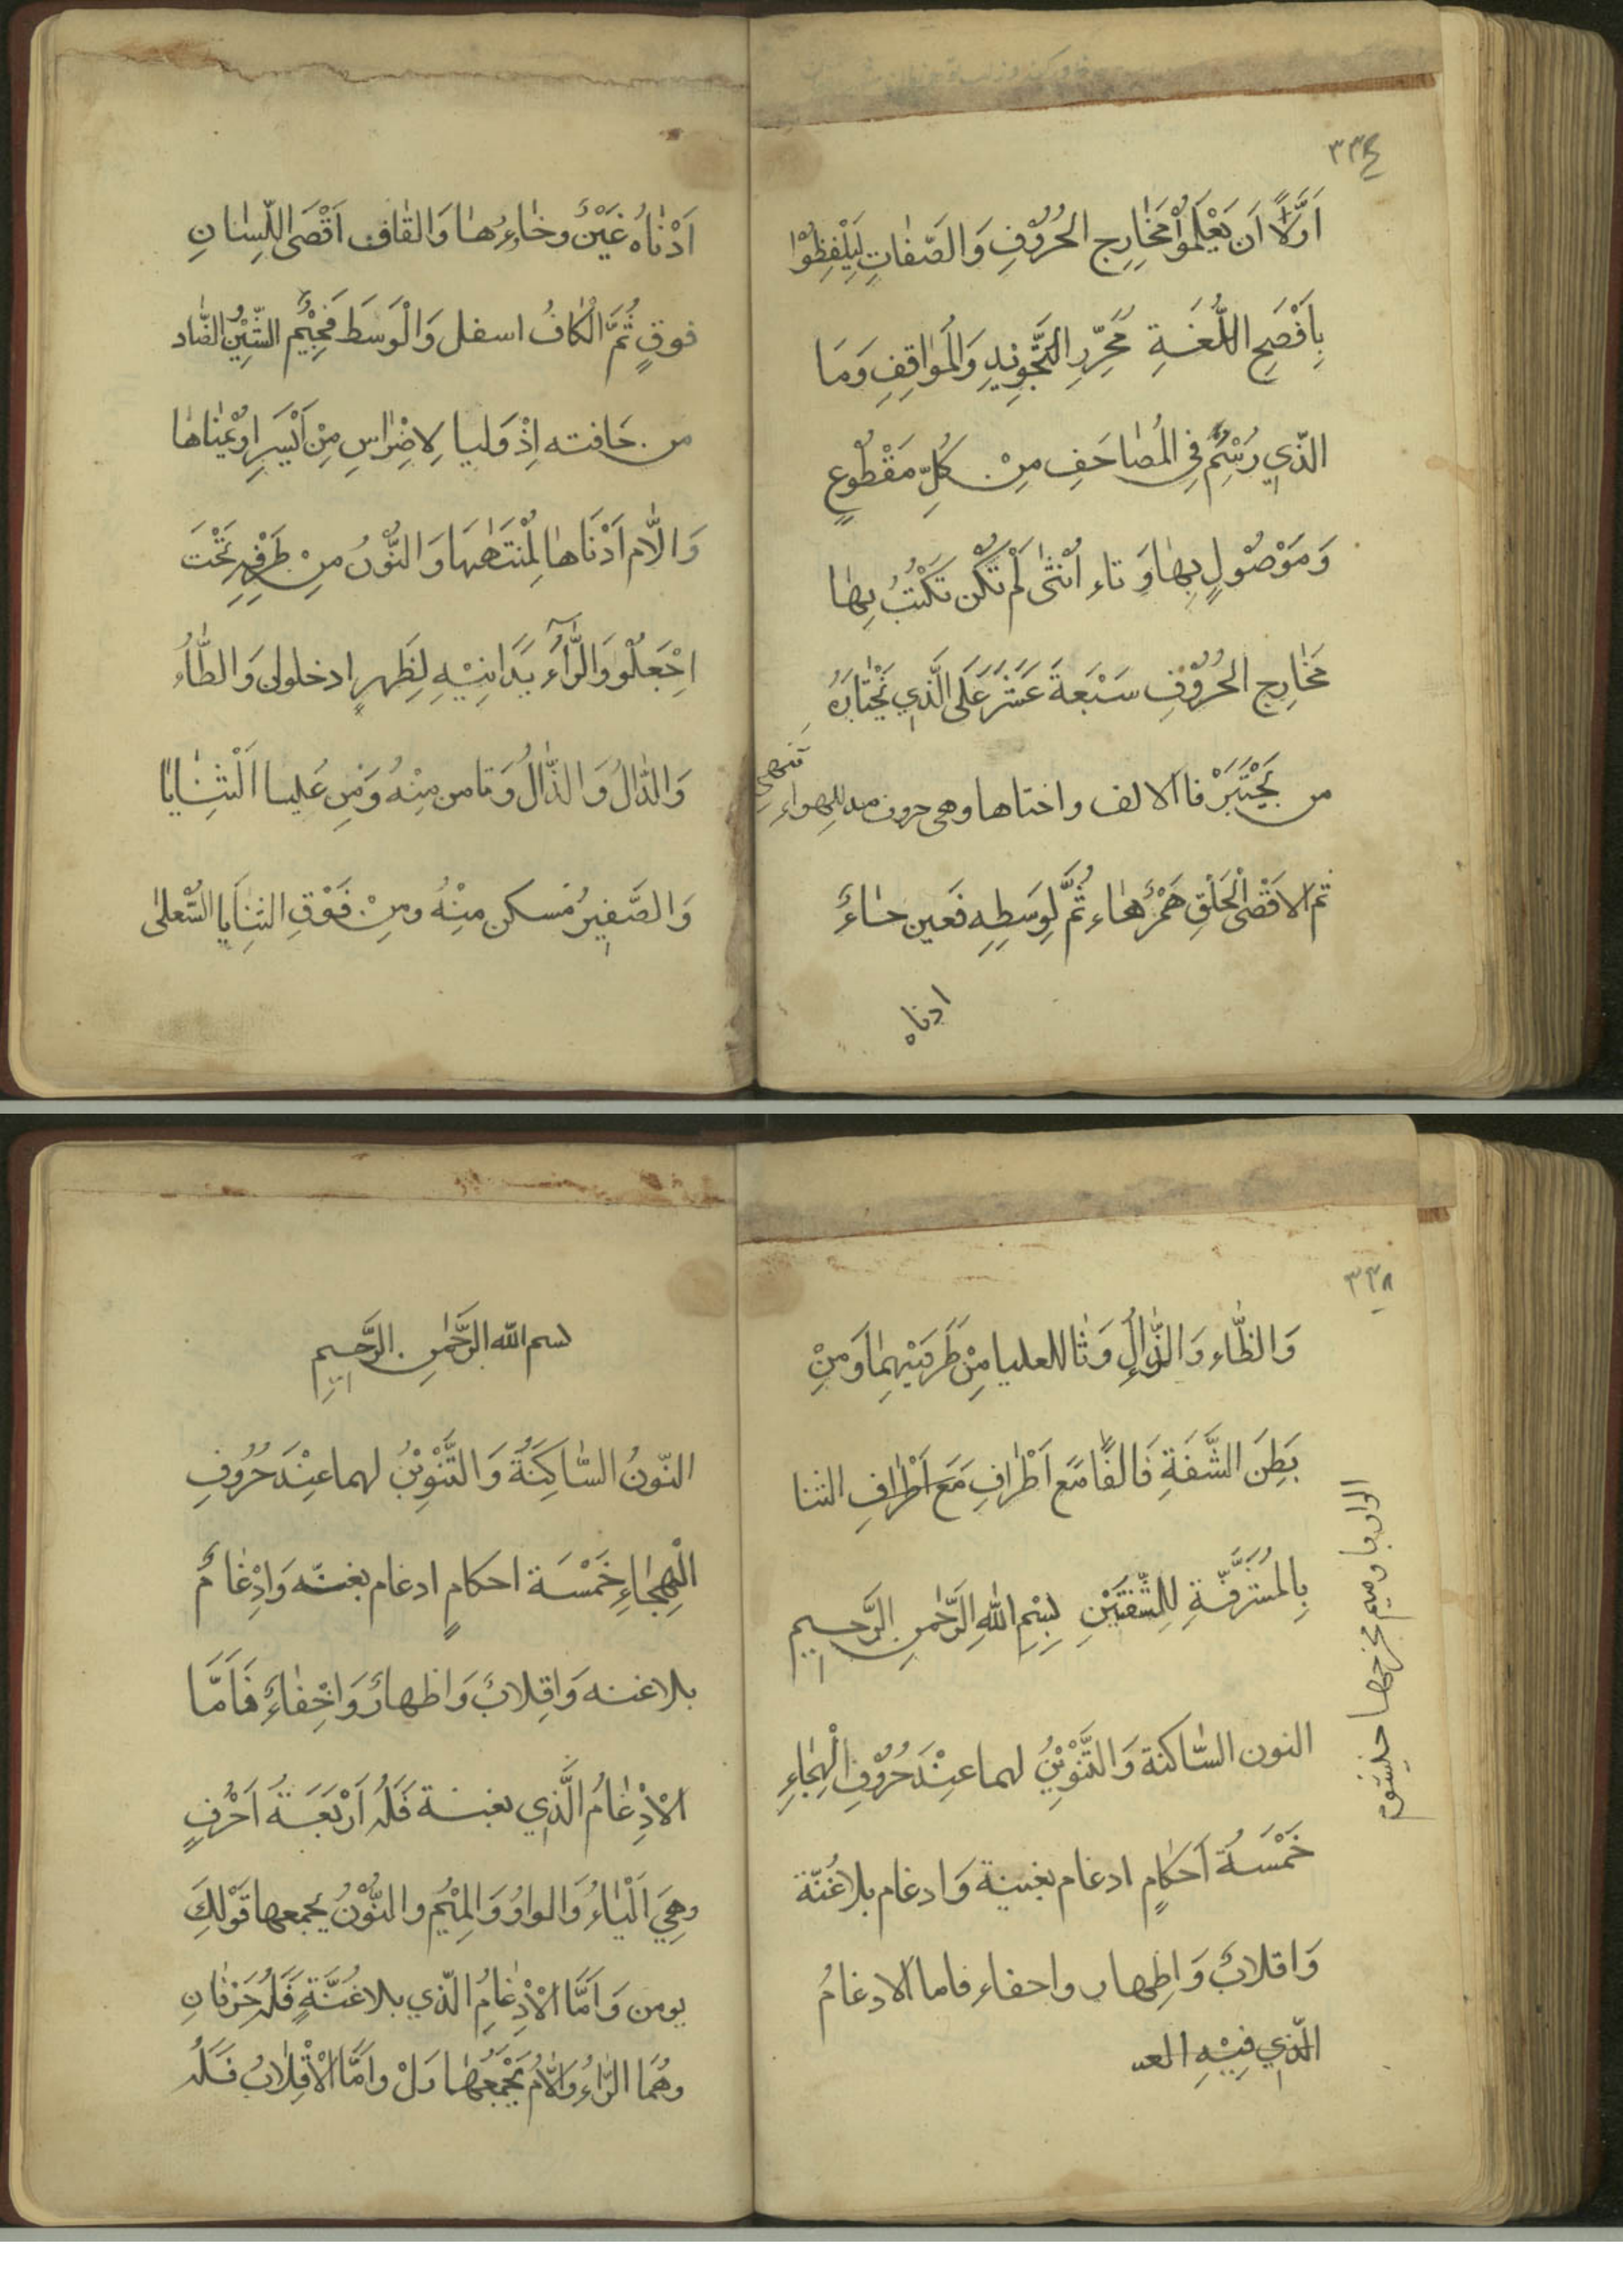 ٣٣٤
اَوَّلًا اَن يَعْلَمُوْا مَخَارِج الحُرُوْفِ وَالصّفاتِ لِيَلْفِظُوْا
بِاَفْصَحِ اللُّغَةِ مُحَرِّرِ التَّجْوِيْدِ وَالمَوَاقِفِ وَمَا
الّذي رُسِّمُ في المُصَاحَفِ مِنْ كُلِّ مَقْطُوعٍ
وَمَوْصُوْلٍ بِهَا وَتاء اُنْثٰى لَمْ تَكُن تُكْتَبُ بِهَا
مَخَارِج الحُرُوْفِ سَبْعَةَ عَشَرَ عَلَى الَّذي يَخْتَارُهُ
من يَجْتَبَرْ فا الالف واختاها وهى حروف مد للِهواءِ تنتهي
ثم الاقْصَى الْحَلْقِ هَمْزُ هَاء ثُمَّ لِوَسَطِهِ فَعين حَاءٌ
ادناه
اَدْنَاهُ غَيْنٌ وخَاءُهَا وَالقَاف اَقْصَى اللِّسَانِ
فوقٍ ثُمَّ الْكَافُ اسفل وَالْوَسَط فَجِيْمُ الشِّيْنُ الضَّاد
من حَافته اِذْ وَليا لِاضْرَاسِ مِنْ اَيْسَرِ اويُمْنَاهَا
وَالاَّم اَدْنَاهَا لِمُنْتَهٰيهَا وَالنُّوْنُ مِنْ طَرَفِهِ تَحْتَ
اِجْعَلُو وَالرَّآءُ يَدَانِيْهِ لِظَهرٍ ادخلولى وَالطَّاءُ
وَالدَّالُ وَالذَّالُ وَتا من مِنْهُ وَمِن عُليا الْثَنَايَا
وَالصَّفِيرُ مُسكن مِنْهُ ومِنْ فَوْقِ الثنَايا السُّعلى
٣٣٨
وَالظَّاء وَالذَّالِ وَثا للعليا مِنْ طَرَفَيْهِمَا وَمِنْ
بَطِنَ الشَّفَةِ فَالفًا مَع اَطْرَافِ مَعَ اَطْرَافِ الثنا
بِالمُشَرَّفَّةِ لِلشَّفَتَيْنِ بِسْمِ اللهِ الرَّحْمٰنِ الرَّحِيم
النون السَّاكنة وَالتَّنْوِيْنُ لهما عِنْدَ حُرُوْفِ الْهِجَاءِ
خَمْسَةُ اَحكَامٍ ادغام بغنية وَادغام بلاغُنّة
وَاقلابٌ وَاِظهار واحفاء فاما الادغامُ
الّذي فِيْهِ العـ
الواو با وميم مخرجها
بسم الله الرَّحْمٰنِ الرَّحِيمِ
النّونُ السَّاكِنَةُ وَالتَّنْوِيْنُ لهما عِنْدَ حُرُوفِ
الْهِجَاءِ خَمْسَة احكامٍ ادغام بغنه وَاِدْغَامٌ
بلاغنه وَاقِلابٌ وَاظهارٌ وَاخِفَاءٌ فَاَمَّا
الْاِدْغَامُ الَّذي بغنة فَلَهُ اَرْبَعَةُ اَحْرُفٍ
وهِيَ اَلْيَاءُ وَالواوُ وَالمِيْمُ والنُّوْنُ يجمعها قَوْلكَ
يومن وَاَمَّا الْاِدْغَامُ الَّذي بلاغُنَّةٍ فَلَهُ حَرْفَانِ
وهُمَا الرَّاءُ وَالاَّمُ يَجْمَعُهَا رَلْ واَمَّا الْاقْلَابُ فَلَهُ